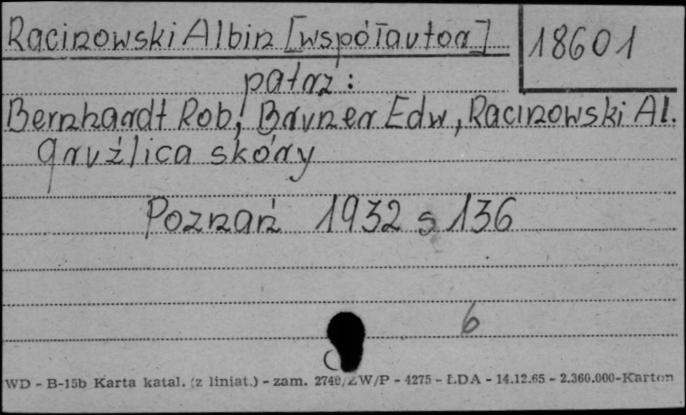 Racinowski Albin [współautor] 18601
patrz:
Bernhardt Rob, Bruner Edw, Racinowski Al.
gruźlica skóry
Poznań 1932 s 136
6
WD - B-15b Karta katal. (z liniat.) - zam. 2740/ZW/P - 4275 - LDA - 14.12.65 - 2.360.000-Karton